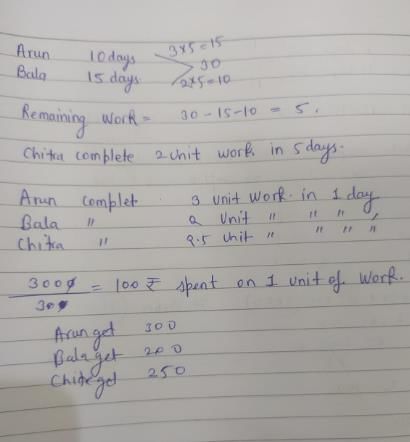 Arun 10 days 3×5=15
30
Bala 15 days 2×5=10
Remaining Work = 30-15-10 = 5.
Chitra complete 2 unit work in 5 days.
Arun complet 3 unit work in 1 day
Bala " 2 unit " " " "
Chitra " 2.5 unit " " " "
3000 / 300 = 100 ₹ spent on 1 unit of work.
Arun get 300
Bala get 200
Chitra get 250